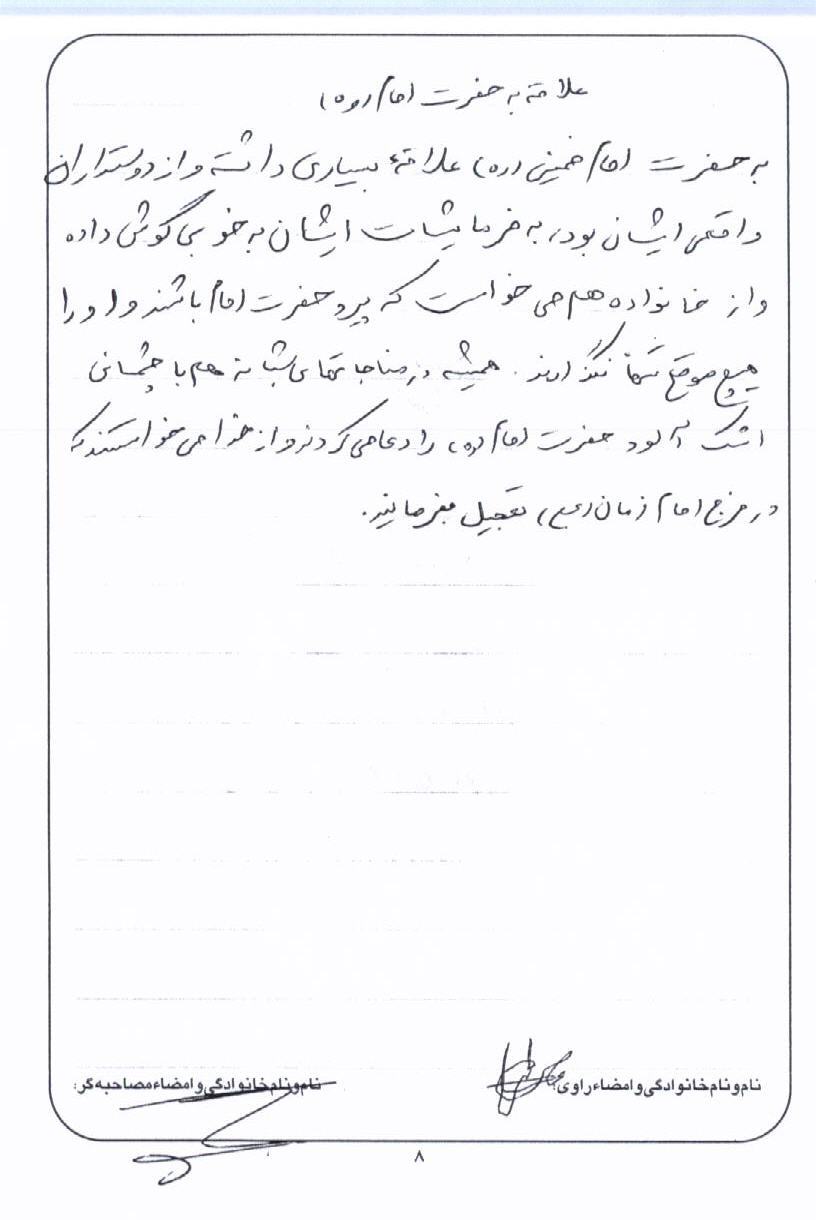 علاقه به حضرت امام (ره)
به حضرت امام خمینی (ره) علاقهٔ بسیاری داشته و از دوستداران
واقعی ایشان بود، به فرمایشات ایشان به خوبی گوش داده
و از خانواده هم می خواست که پیرو حضرت امام باشند و او را
هیچ موقع تنها نگذارند. همیشه در مناجاتهای شبانه هم با چشمانی
اشک آلود حضرت امام (ره) را دعا می کردند و از خدا می خواستند که
در فرج امام زمان (عج) تعجیل بفرمایند.
نام و نام خانوادگی و امضاء راوی:
نام و نام خانوادگی و امضاء مصاحبه گر:
۸